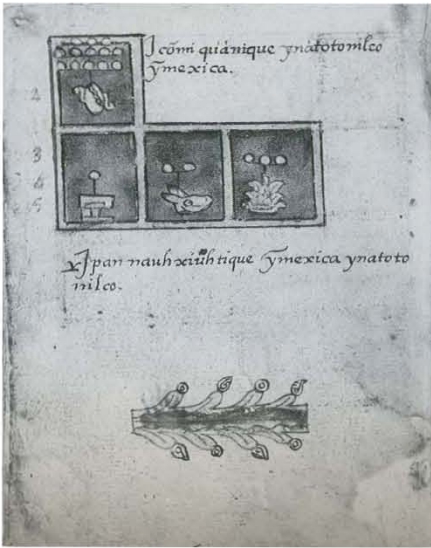 Icōmi quiānique ynatotonilco
ȳmexica.
2
3
4
5
Ipan nauhxiuhtique ȳmexica ynatoto
nilco.